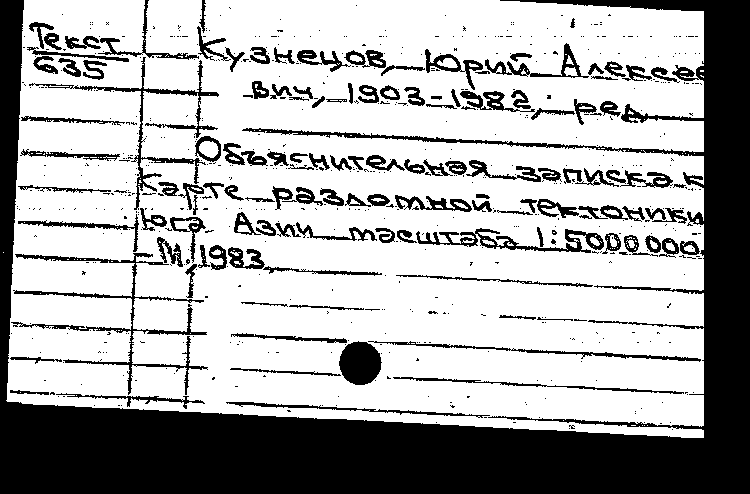 Текст
635
Кузнецов, Юрий Алексее
вич, 1903-1982, ред.
Объяснительная записка к
карте разломной тектоники
юга Азии масштаба 1:5000000.
- М., 1983